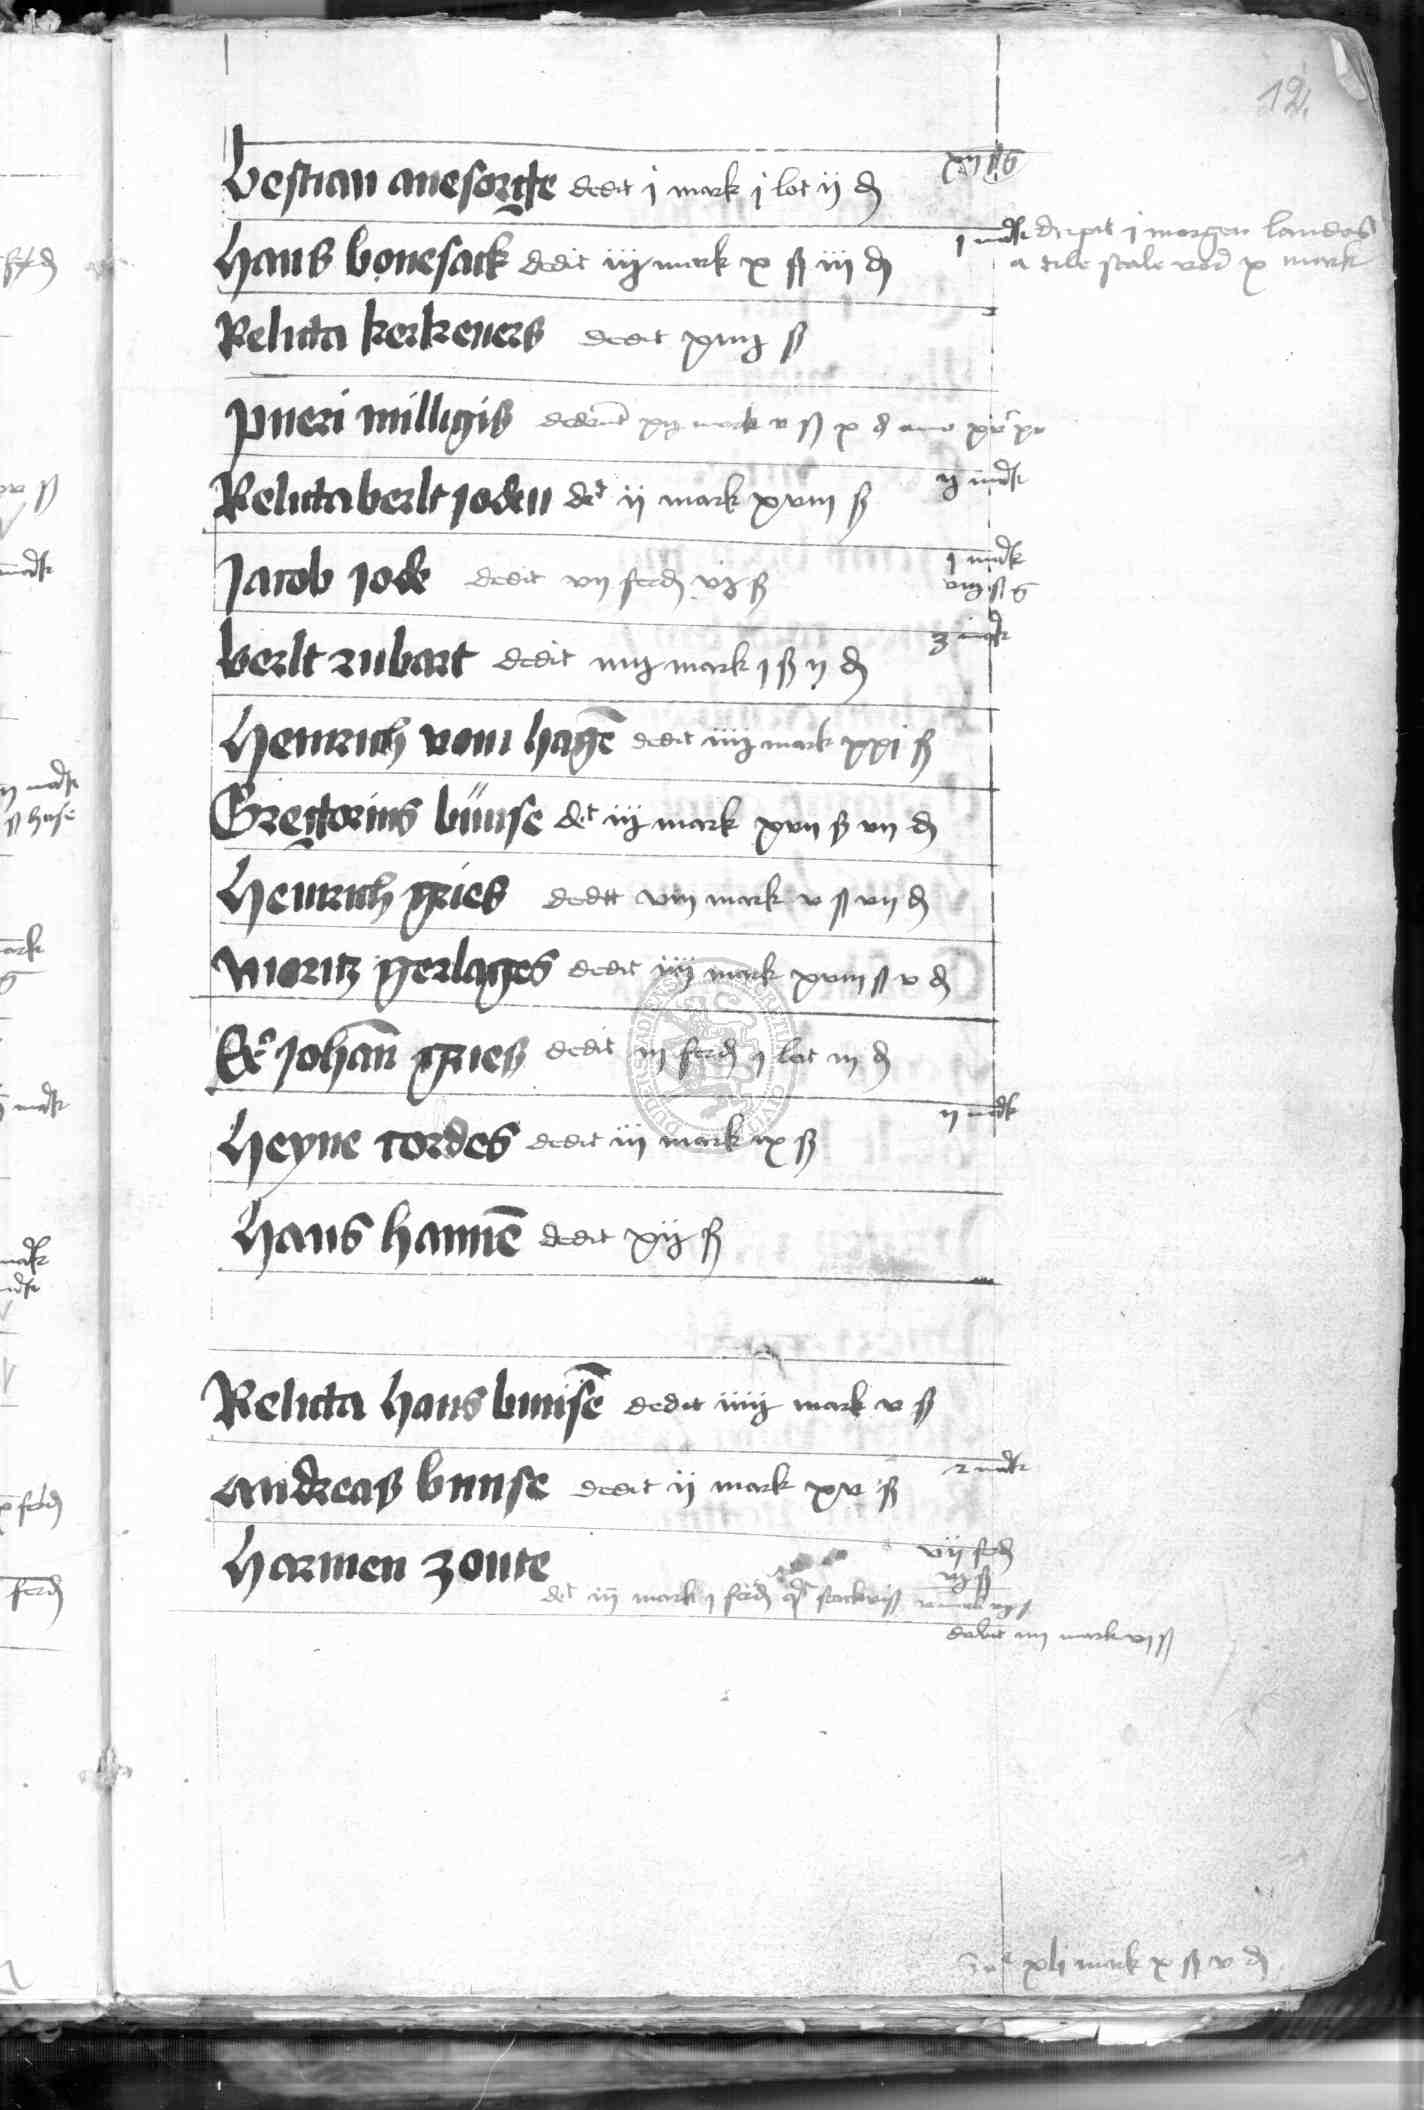 12
Bestian anesorge dedit j mark j lot ij d
Hans bonesack dedit iij mark x ß iij d
j mark
emit j morgen landes
a tile stale vor x mark
Relicta kerkeners dedit xiiij ß
Pueri milligis dederunt mark v ß x d
Relicta berlt joden dedit ij mark xviij ß
ij mark
Jacob jode dedit vij ferd ß
j mark
berlt rubart dedit iiij mark j ß ij d
3 mark
Henrich vom hagen dedit iiij mark xxj ß
Gregorius bünse dedit iij mark xvij ß vij d
Henrich gries dedit viij mark v ß vij d
Moritz gerlages dedit iiij mark xviij ß v d
Er johan gries dedit iij ferd j lot iij d
Heyne cordes dedit iij mark ix ß
ij mark
Hans hannen dedit xij ß
Relicta hans bunsen dedit iiij mark v ß
Andreas bunse dedit ij mark xv ß
2 mark
Harmen zonte
vij ferd
dedit iij mark j ferd
dedit iij mark vj ß
xlj mark x ß v d